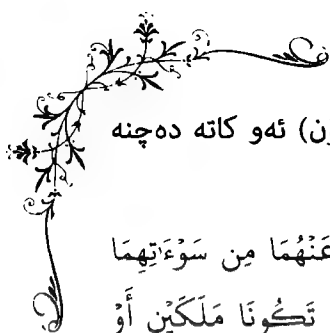 ن) ئەو کاتە دەچنە
عَنْهُمَا مِن سَوْءَٰتِهِمَا
تَكُونَا مَلَكَيْنِ أَوْ